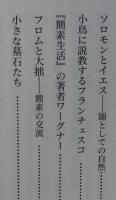 ソロモンとイエス——師としての自然…
小鳥に説教するフランチェスコ…………
『簡素生活』の著者ワーグナー…………
フロムと大拙——簡素の交流……………
小さな墓石たち……………………